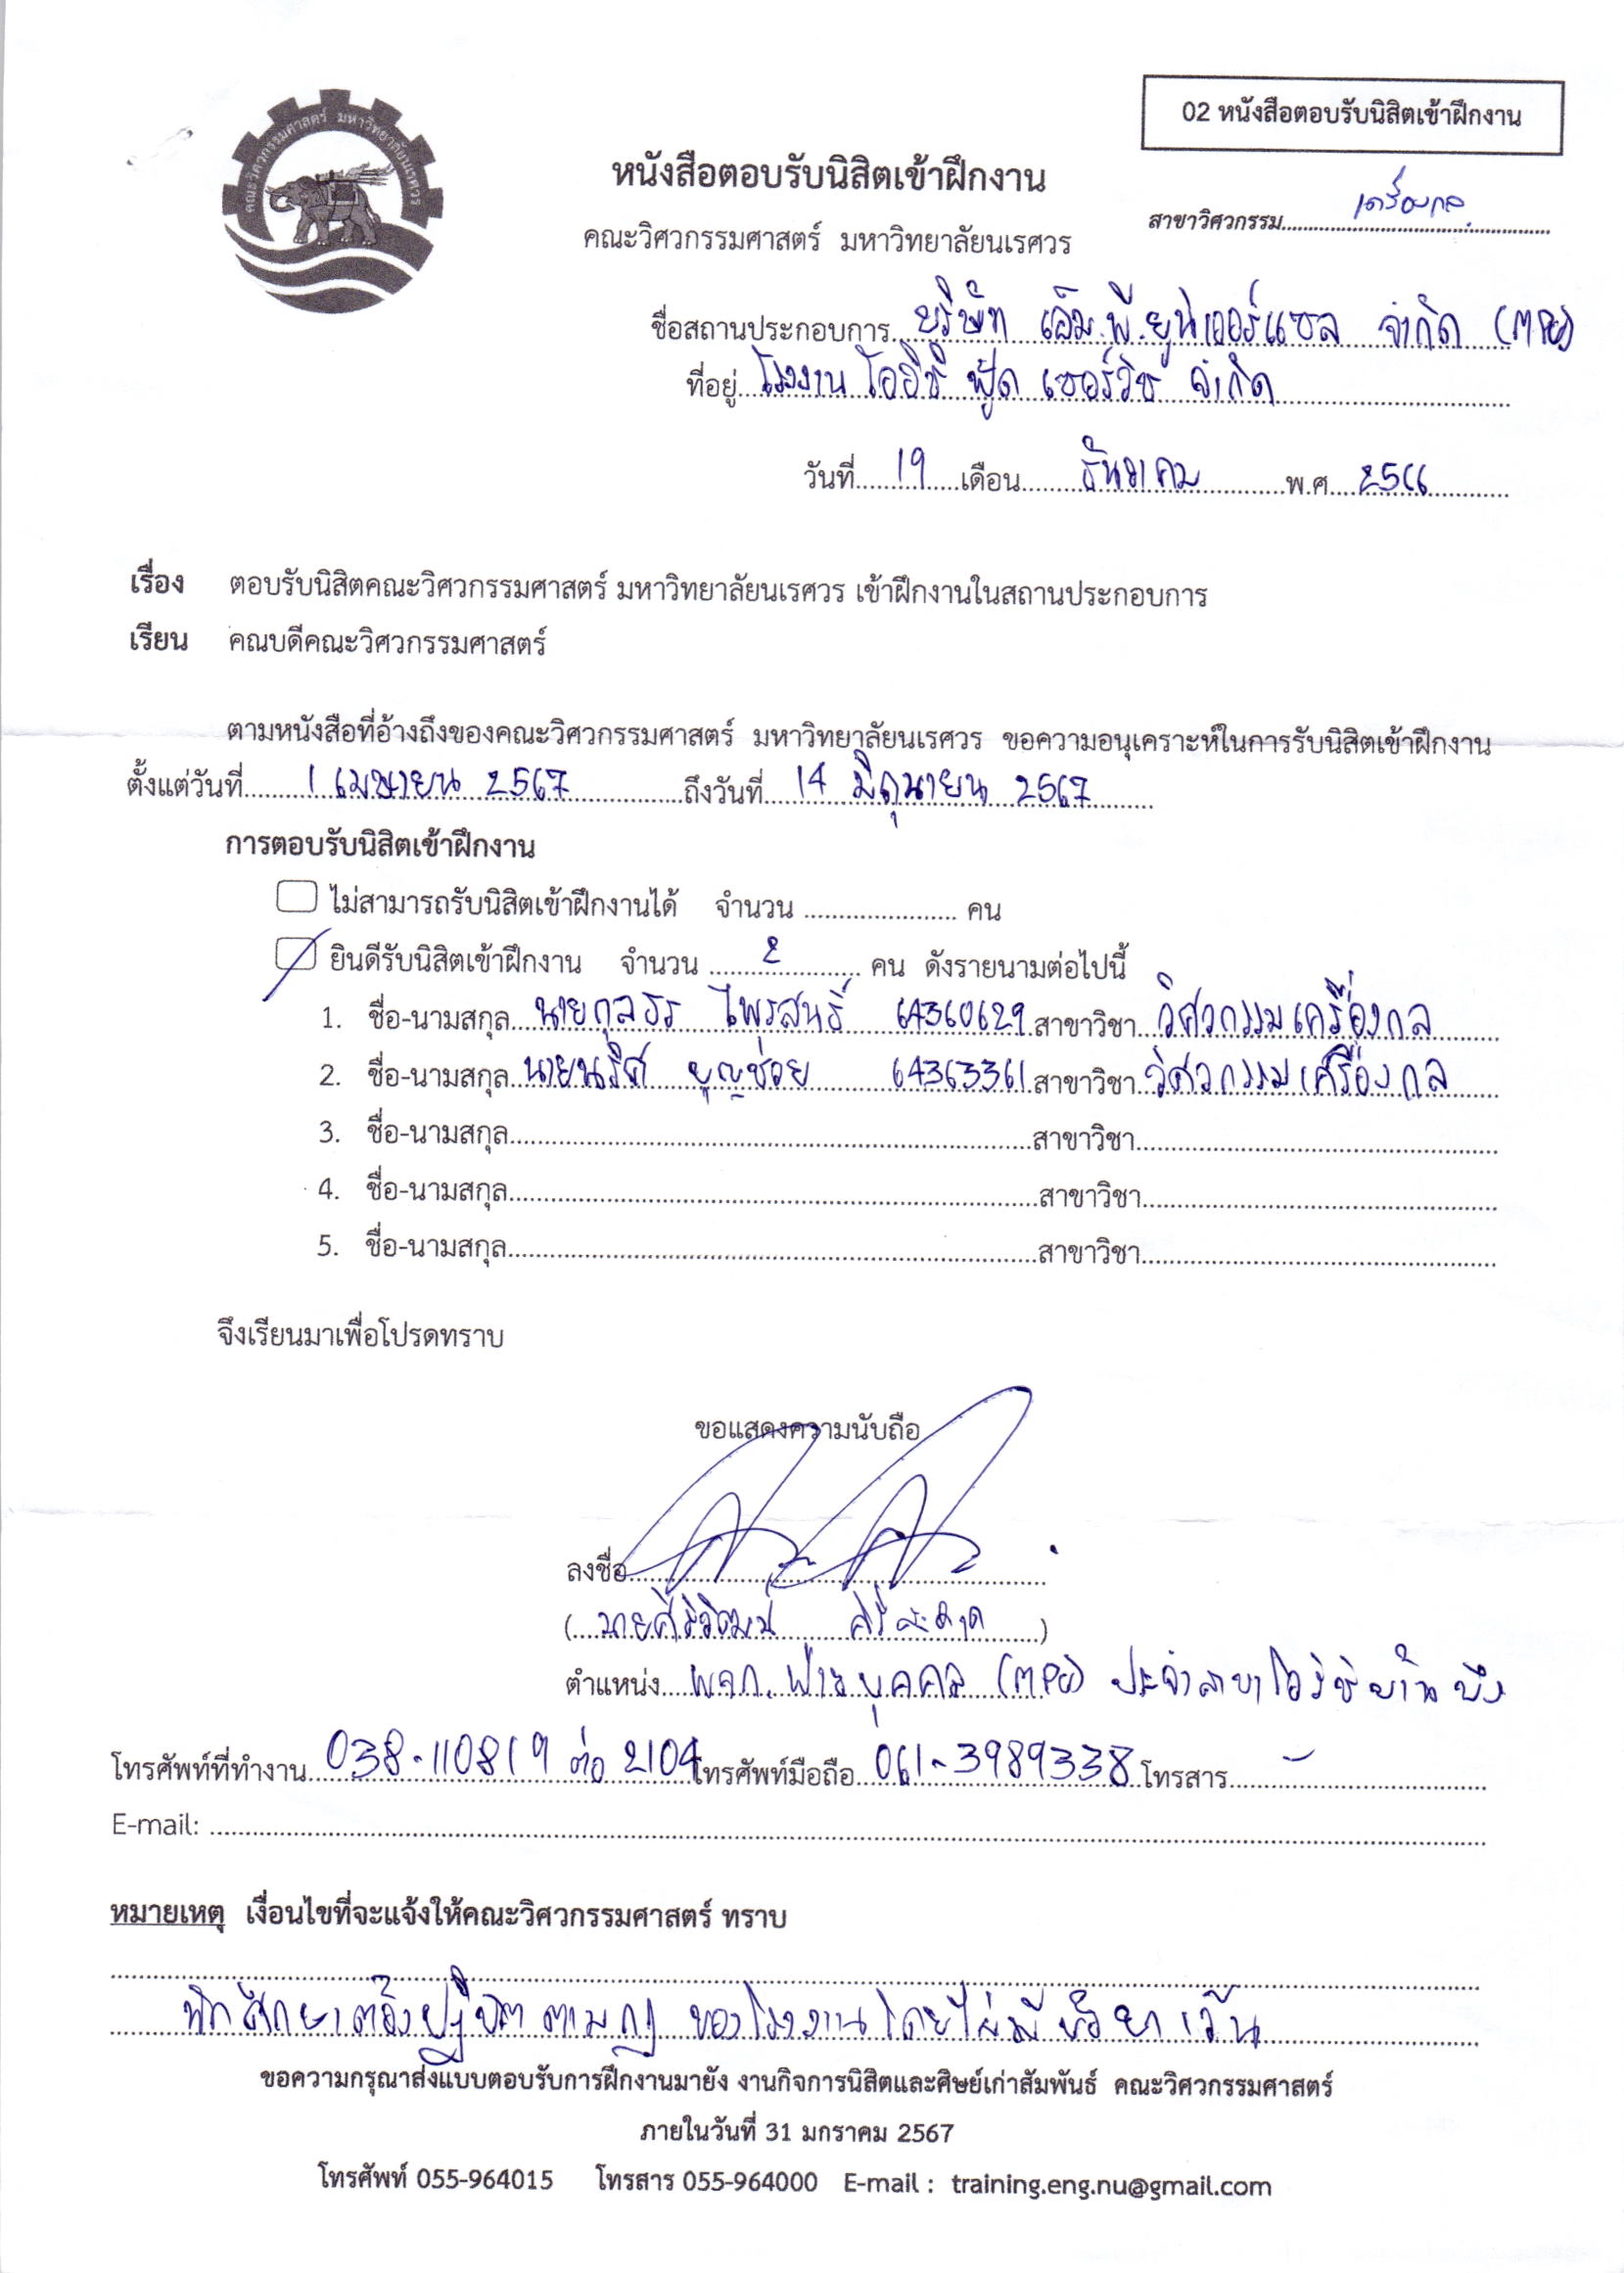 คณะวิศวกรรมศาสตร์ มหาวิทยาลัยนเรศวร
02 หนังสือตอบรับนิสิตเข้าฝึกงาน
หนังสือตอบรับนิสิตเข้าฝึกงาน
สาขาวิศวกรรม เครื่องกล
คณะวิศวกรรมศาสตร์ มหาวิทยาลัยนเรศวร
ชื่อสถานประกอบการ บริษัท เอ็ม.พี.ยูนิเวอร์แซล จำกัด (MPU)
ที่อยู่ โรงงาน โออิชิ ฟู้ด เซอร์วิช จำกัด
วันที่ 19 เดือน ธันวาคม พ.ศ. 2566
เรื่อง ตอบรับนิสิตคณะวิศวกรรมศาสตร์ มหาวิทยาลัยนเรศวร เข้าฝึกงานในสถานประกอบการ
เรียน คณบดีคณะวิศวกรรมศาสตร์
ตามหนังสือที่อ้างถึงของคณะวิศวกรรมศาสตร์ มหาวิทยาลัยนเรศวร ขอความอนุเคราะห์ในการรับนิสิตเข้าฝึกงาน
ตั้งแต่วันที่ 1 เมษายน 2567 ถึงวันที่ 14 มิถุนายน 2567
การตอบรับนิสิตเข้าฝึกงาน
ไม่สามารถรับนิสิตเข้าฝึกงานได้ จำนวน ...................... คน
ยินดีรับนิสิตเข้าฝึกงาน จำนวน 2 คน ดังรายนามต่อไปนี้
1. ชื่อ-นามสกุล นายกุลธร ไพรสนธิ์ 64360629 สาขาวิชา วิศวกรรมเครื่องกล
2. ชื่อ-นามสกุล นายนริศ บุญช่วย 64363361 สาขาวิชา วิศวกรรมเครื่องกล
3. ชื่อ-นามสกุล สาขาวิชา
4. ชื่อ-นามสกุล สาขาวิชา
5. ชื่อ-นามสกุล สาขาวิชา
จึงเรียนมาเพื่อโปรดทราบ
ขอแสดงความนับถือ
ลงชื่อ
( นายศิริวัฒน์ )
ตำแหน่ง ผจก.ฝ่ายบุคคล (MPU) ประจำสาขาโออิชิบ้านบึง
โทรศัพท์ที่ทำงาน 038-110819 ต่อ 2104 โทรศัพท์มือถือ 061-3989338 โทรสาร -
E-mail:
หมายเหตุ เงื่อนไขที่จะแจ้งให้คณะวิศวกรรมศาสตร์ ทราบ
นักศึกษาต้องปฏิบัติตามกฎ ของโรงงานโดยไม่มีข้อยกเว้น
ขอความกรุณาส่งแบบตอบรับการฝึกงานมายัง งานกิจการนิสิตและศิษย์เก่าสัมพันธ์ คณะวิศวกรรมศาสตร์
ภายในวันที่ 31 มกราคม 2567
โทรศัพท์ 055-964015 โทรสาร 055-964000 E-mail : training.eng.nu@gmail.com